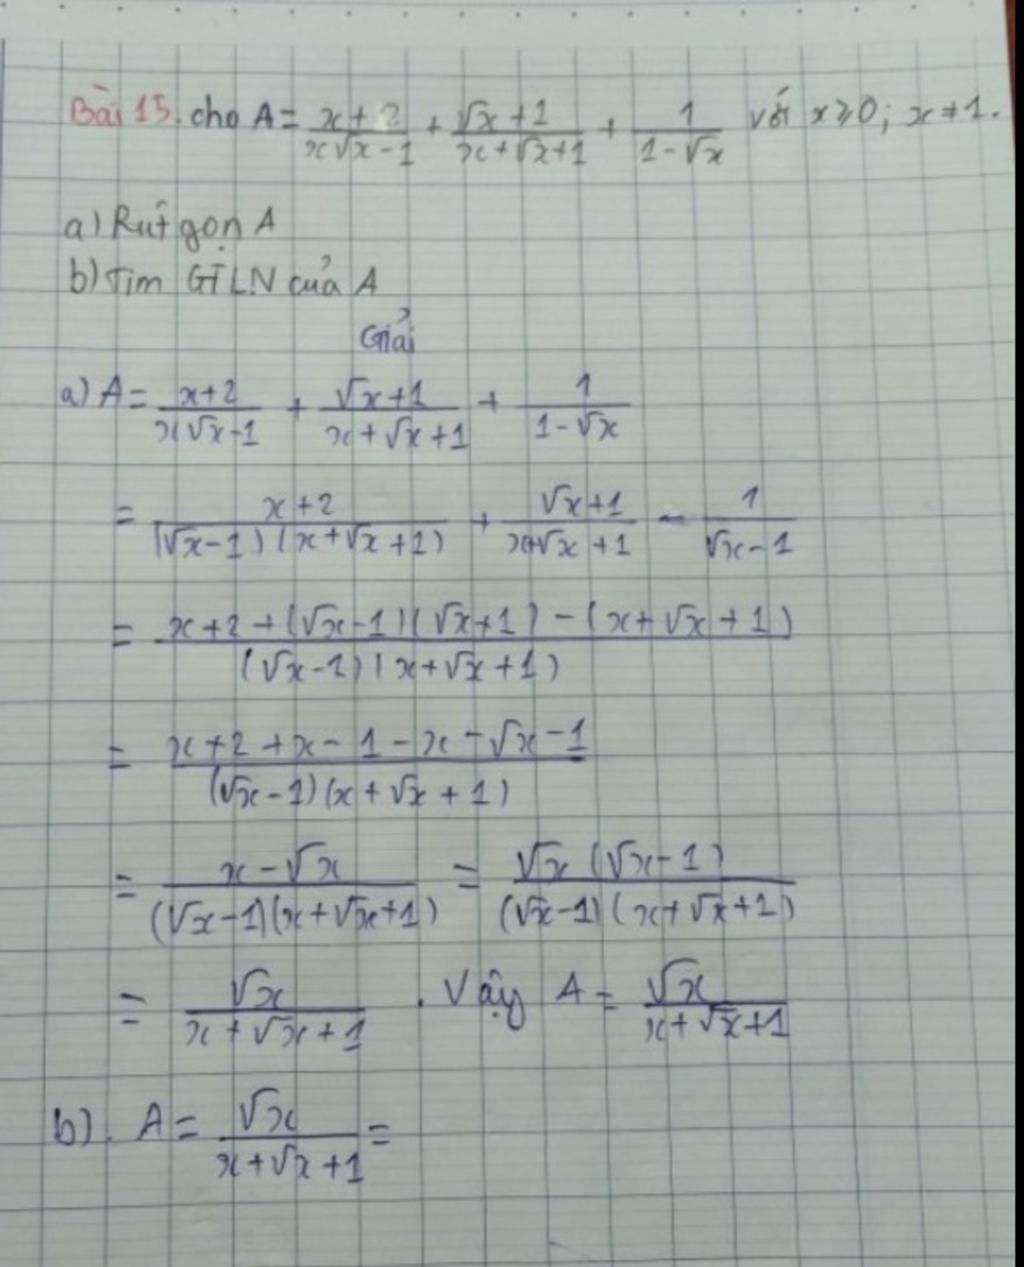 Bài 15. cho A = \frac{x+2}{x\sqrt{x}-1} + \frac{\sqrt{x}+1}{x+\sqrt{x}+1} + \frac{1}{1-\sqrt{x}} với x ≥ 0; x ≠ 1.
a) Rút gọn A
b) Tìm GTLN của A
Giải
a) A = \frac{x+2}{x\sqrt{x}-1} + \frac{\sqrt{x}+1}{x+\sqrt{x}+1} + \frac{1}{1-\sqrt{x}}
= \frac{x+2}{(\sqrt{x}-1)(x+\sqrt{x}+1)} + \frac{\sqrt{x}+1}{x+\sqrt{x}+1} - \frac{1}{\sqrt{x}-1}
= \frac{x+2+(\sqrt{x}-1)(\sqrt{x}+1)-(x+\sqrt{x}+1)}{(\sqrt{x}-1)(x+\sqrt{x}+1)}
= \frac{x+2+x-1-x-\sqrt{x}-1}{(\sqrt{x}-1)(x+\sqrt{x}+1)}
= \frac{x-\sqrt{x}}{(\sqrt{x}-1)(x+\sqrt{x}+1)} = \frac{\sqrt{x}(\sqrt{x}-1)}{(\sqrt{x}-1)(x+\sqrt{x}+1)}
= \frac{\sqrt{x}}{x+\sqrt{x}+1} . Vậy A = \frac{\sqrt{x}}{x+\sqrt{x}+1}
b). A = \frac{\sqrt{x}}{x+\sqrt{x}+1} =